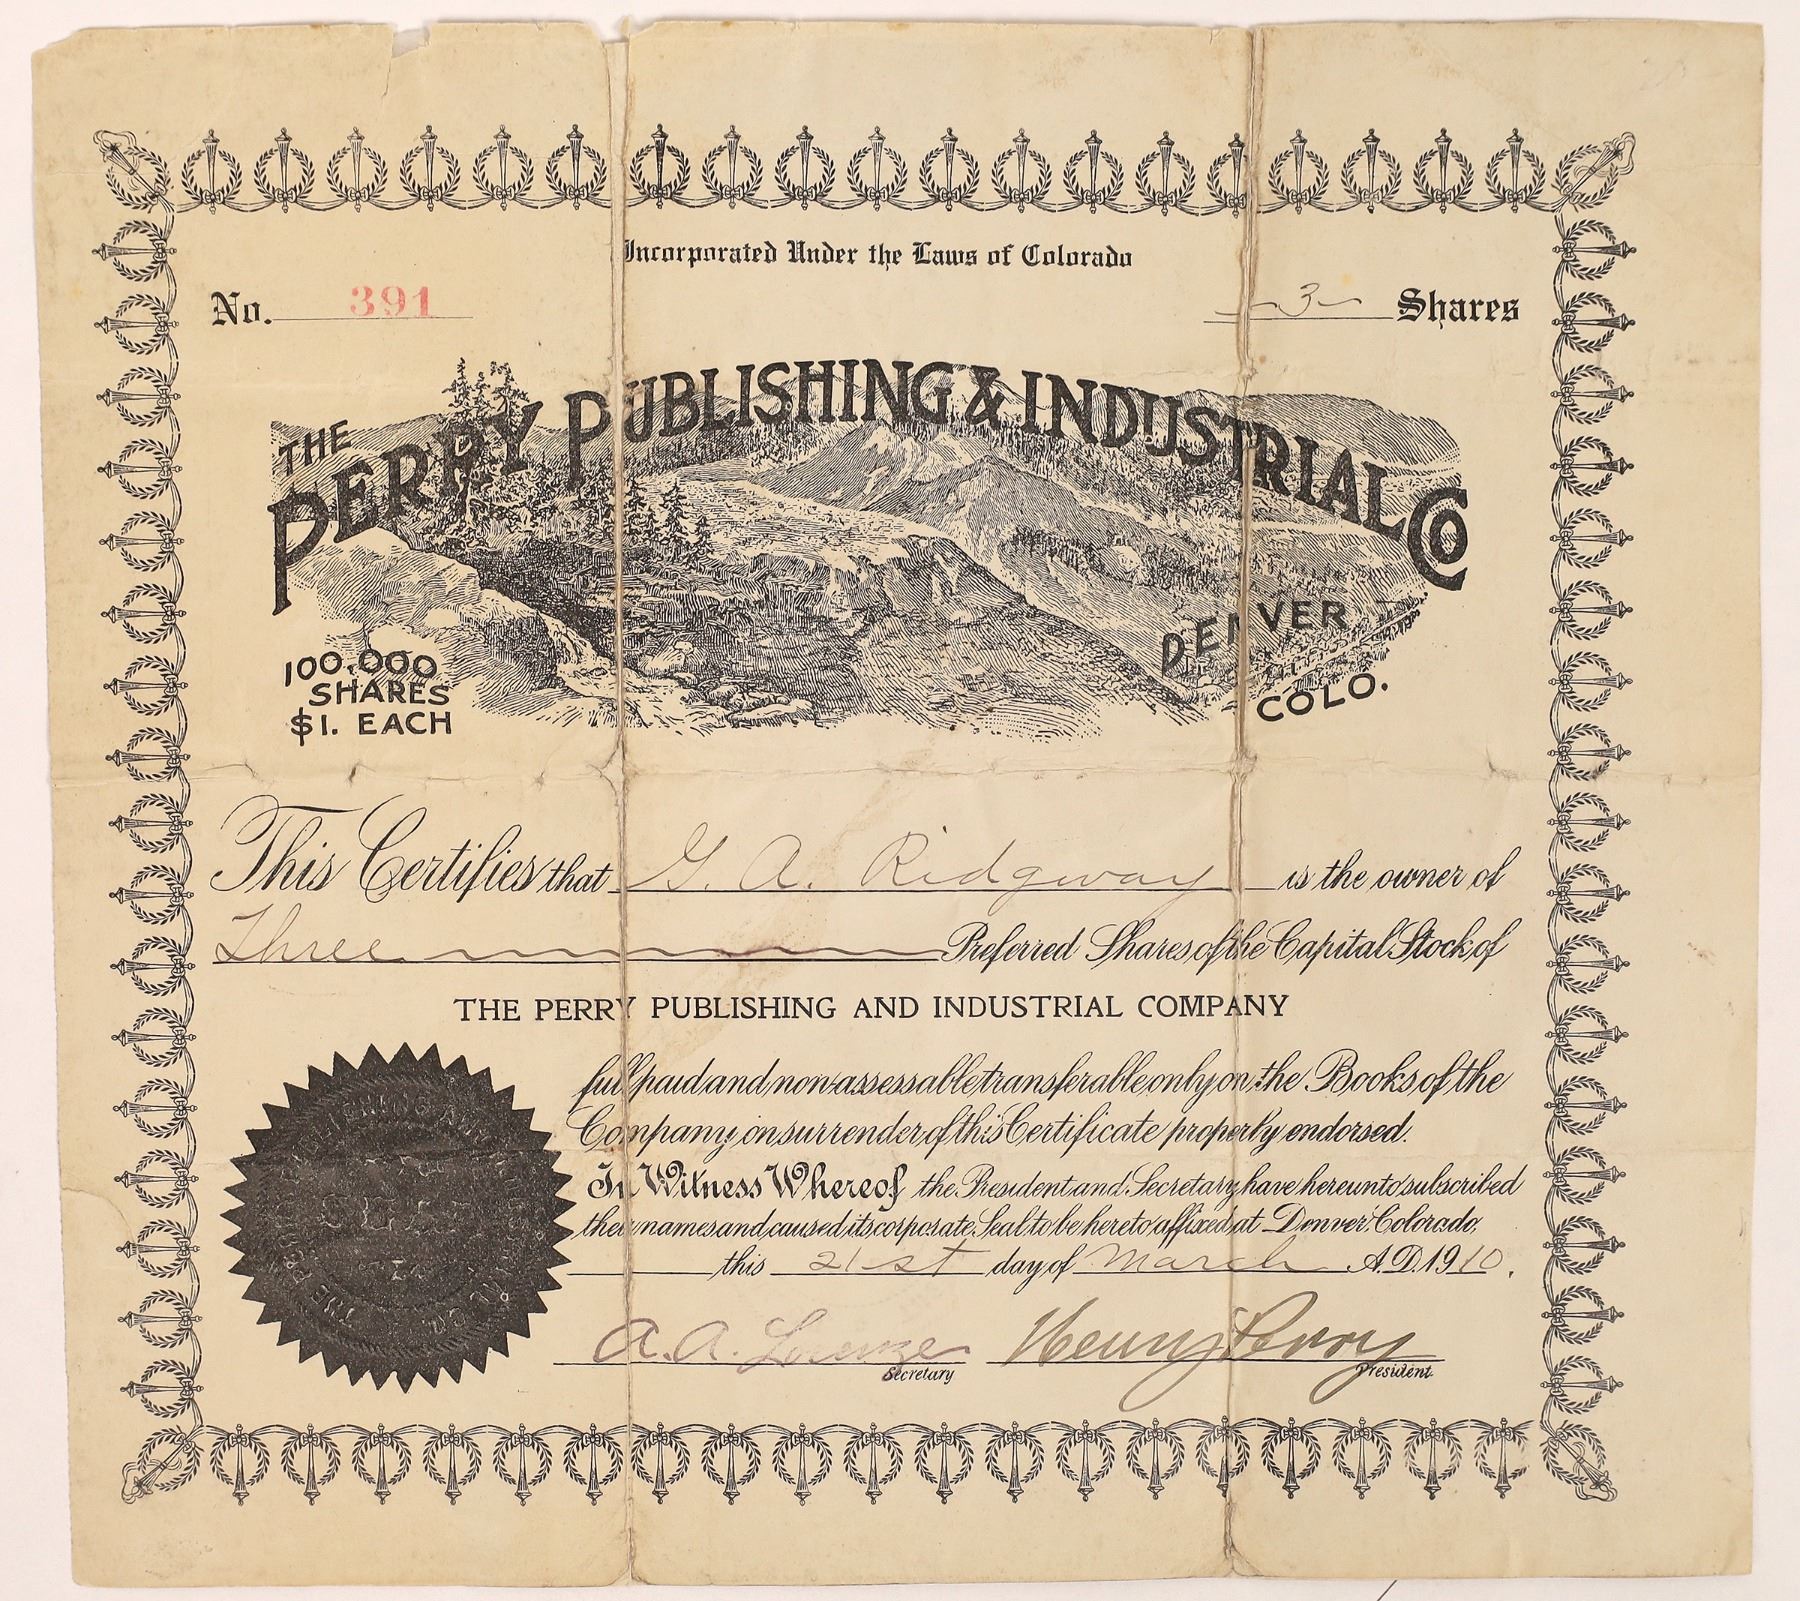 Incorporated Under the Laws of Colorado
No. 391
3 Shares
THE
PERRY PUBLISHING & INDUSTRIAL CO
DENVER
COLO.
100,000
SHARES
$1. EACH
This Certifies that G. A. Ridgway is the owner of
Three Preferred Shares of the Capital Stock of
THE PERRY PUBLISHING AND INDUSTRIAL COMPANY
full paid and non-assessable transferable only on the Books of the
Company on surrender of this Certificate properly endorsed.
In Witness Whereof, the President and Secretary have hereunto subscribed
their names and caused its corporate Seal to be hereto affixed at Denver, Colorado,
this 21st day of March A.D. 1910.
A. A. Henry Perry
Secretary President
SEAL